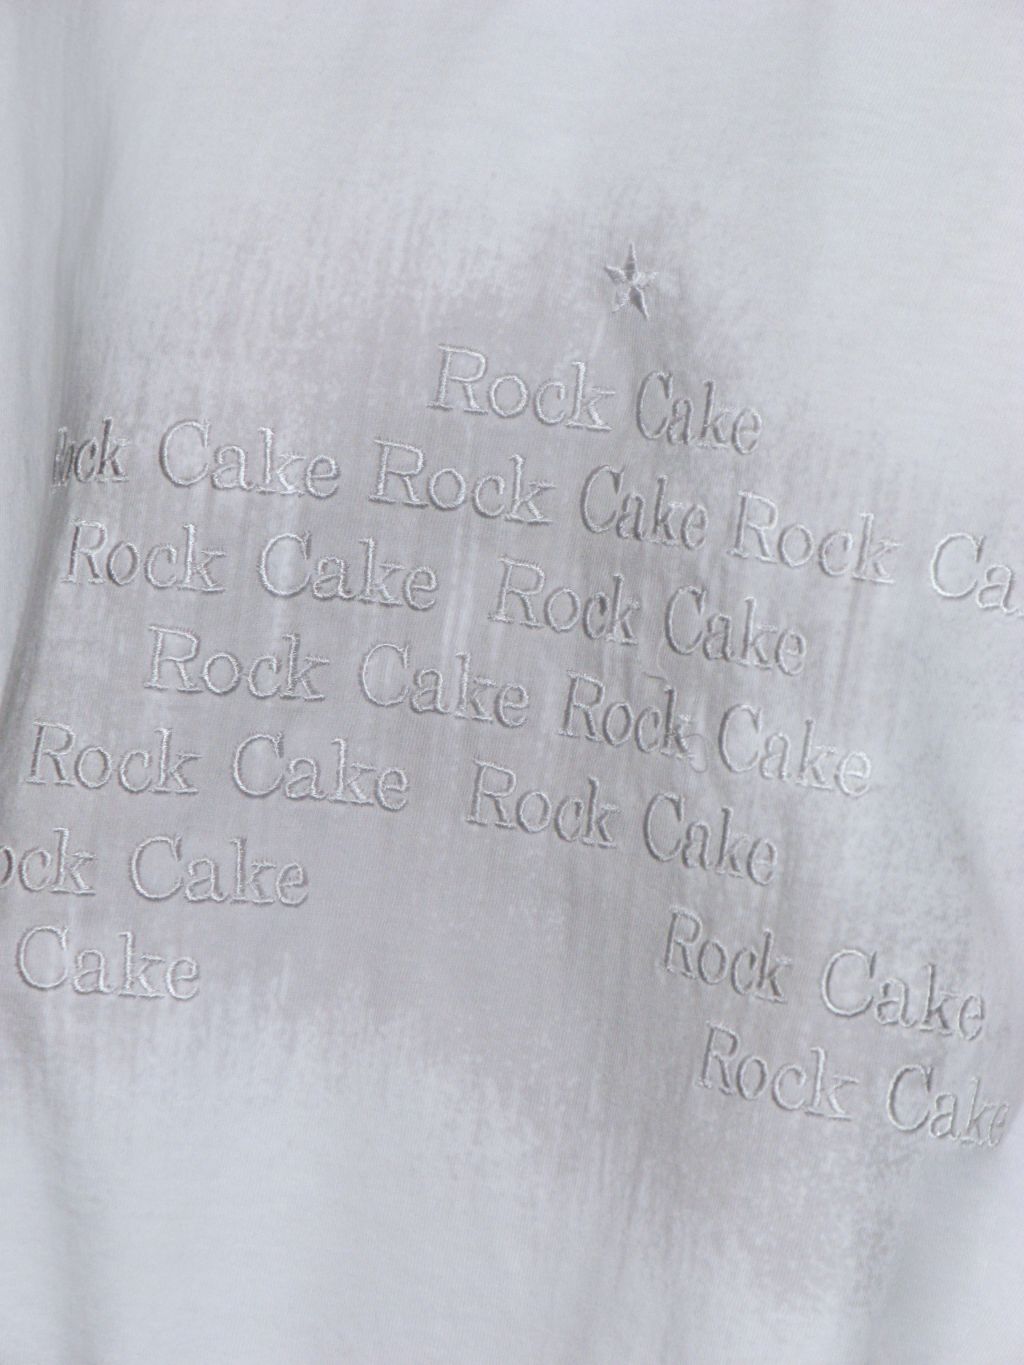 Rock Cake
Rock Cake Rock Cake Rock Ca
Rock Cake Rock Cake
Rock Cake Rock Cake
Rock Cake Rock Cake
ock Cake
Cake
Rock Cake
Rock Cake